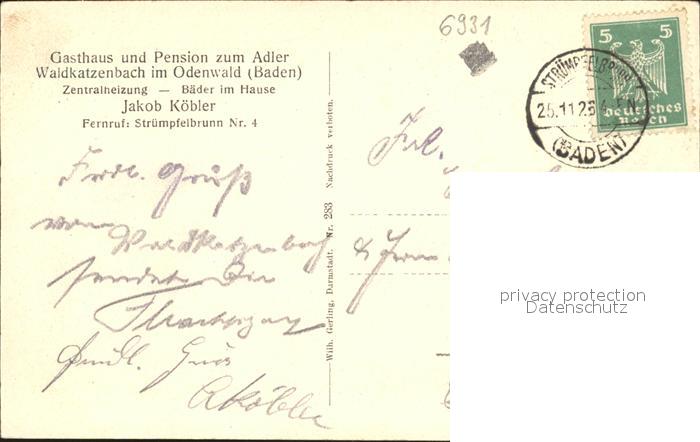 6931
Gasthaus und Pension zum Adler
Waldkatzenbach im Odenwald (Baden)
Zentralheizung — Bäder im Hause
Jakob Köbler
Fernruf: Strümpfelbrunn Nr. 4
5 5
Deutsches
Reich
STRÜMPFELBRUNN
25.11.26
(BADEN)
Frdl. Gruß
von
Waldkatzenbach
sendet
Frdl. Gruß
A Köbler
Wilh. Gerling, Darmstadt. Nr. 283 Nachdruck verboten.
Frl.
& Frau
privacy protection
Datenschutz